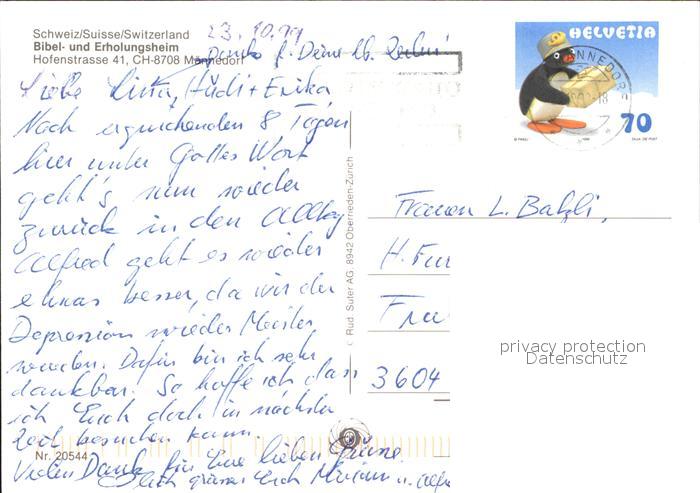 Schweiz/Suisse/Switzerland
Bibel- und Erholungsheim
Hofenstrasse 41, CH-8708 Männedorf
23.10.99
Danke f. Deine lb. Zeilen
Liebe Lina, Hädi + Erika
Nach erquickenden 8 Tagen
hier unter Gottes Wort
geht's nun wieder
zurück in den Alltag
Alfred geht es wieder
etwas besser, da wir der
Depression wieder Meister
wurden. Dafür bin ich sehr
dankbar. So hoffe ich dass
ich Euch doch in nächster
Zeit besuchen kann.
Nr. 20544
Vielen Dank für Eure lieben Grüsse.
grüssen Euch Miriam u.
© Rud. Suter AG, 8942 Oberrieden-Zürich
HELVETIA
70
Frauen L. Batzli,
H. Fur
Fru
3604
privacy protection
Datenschutz